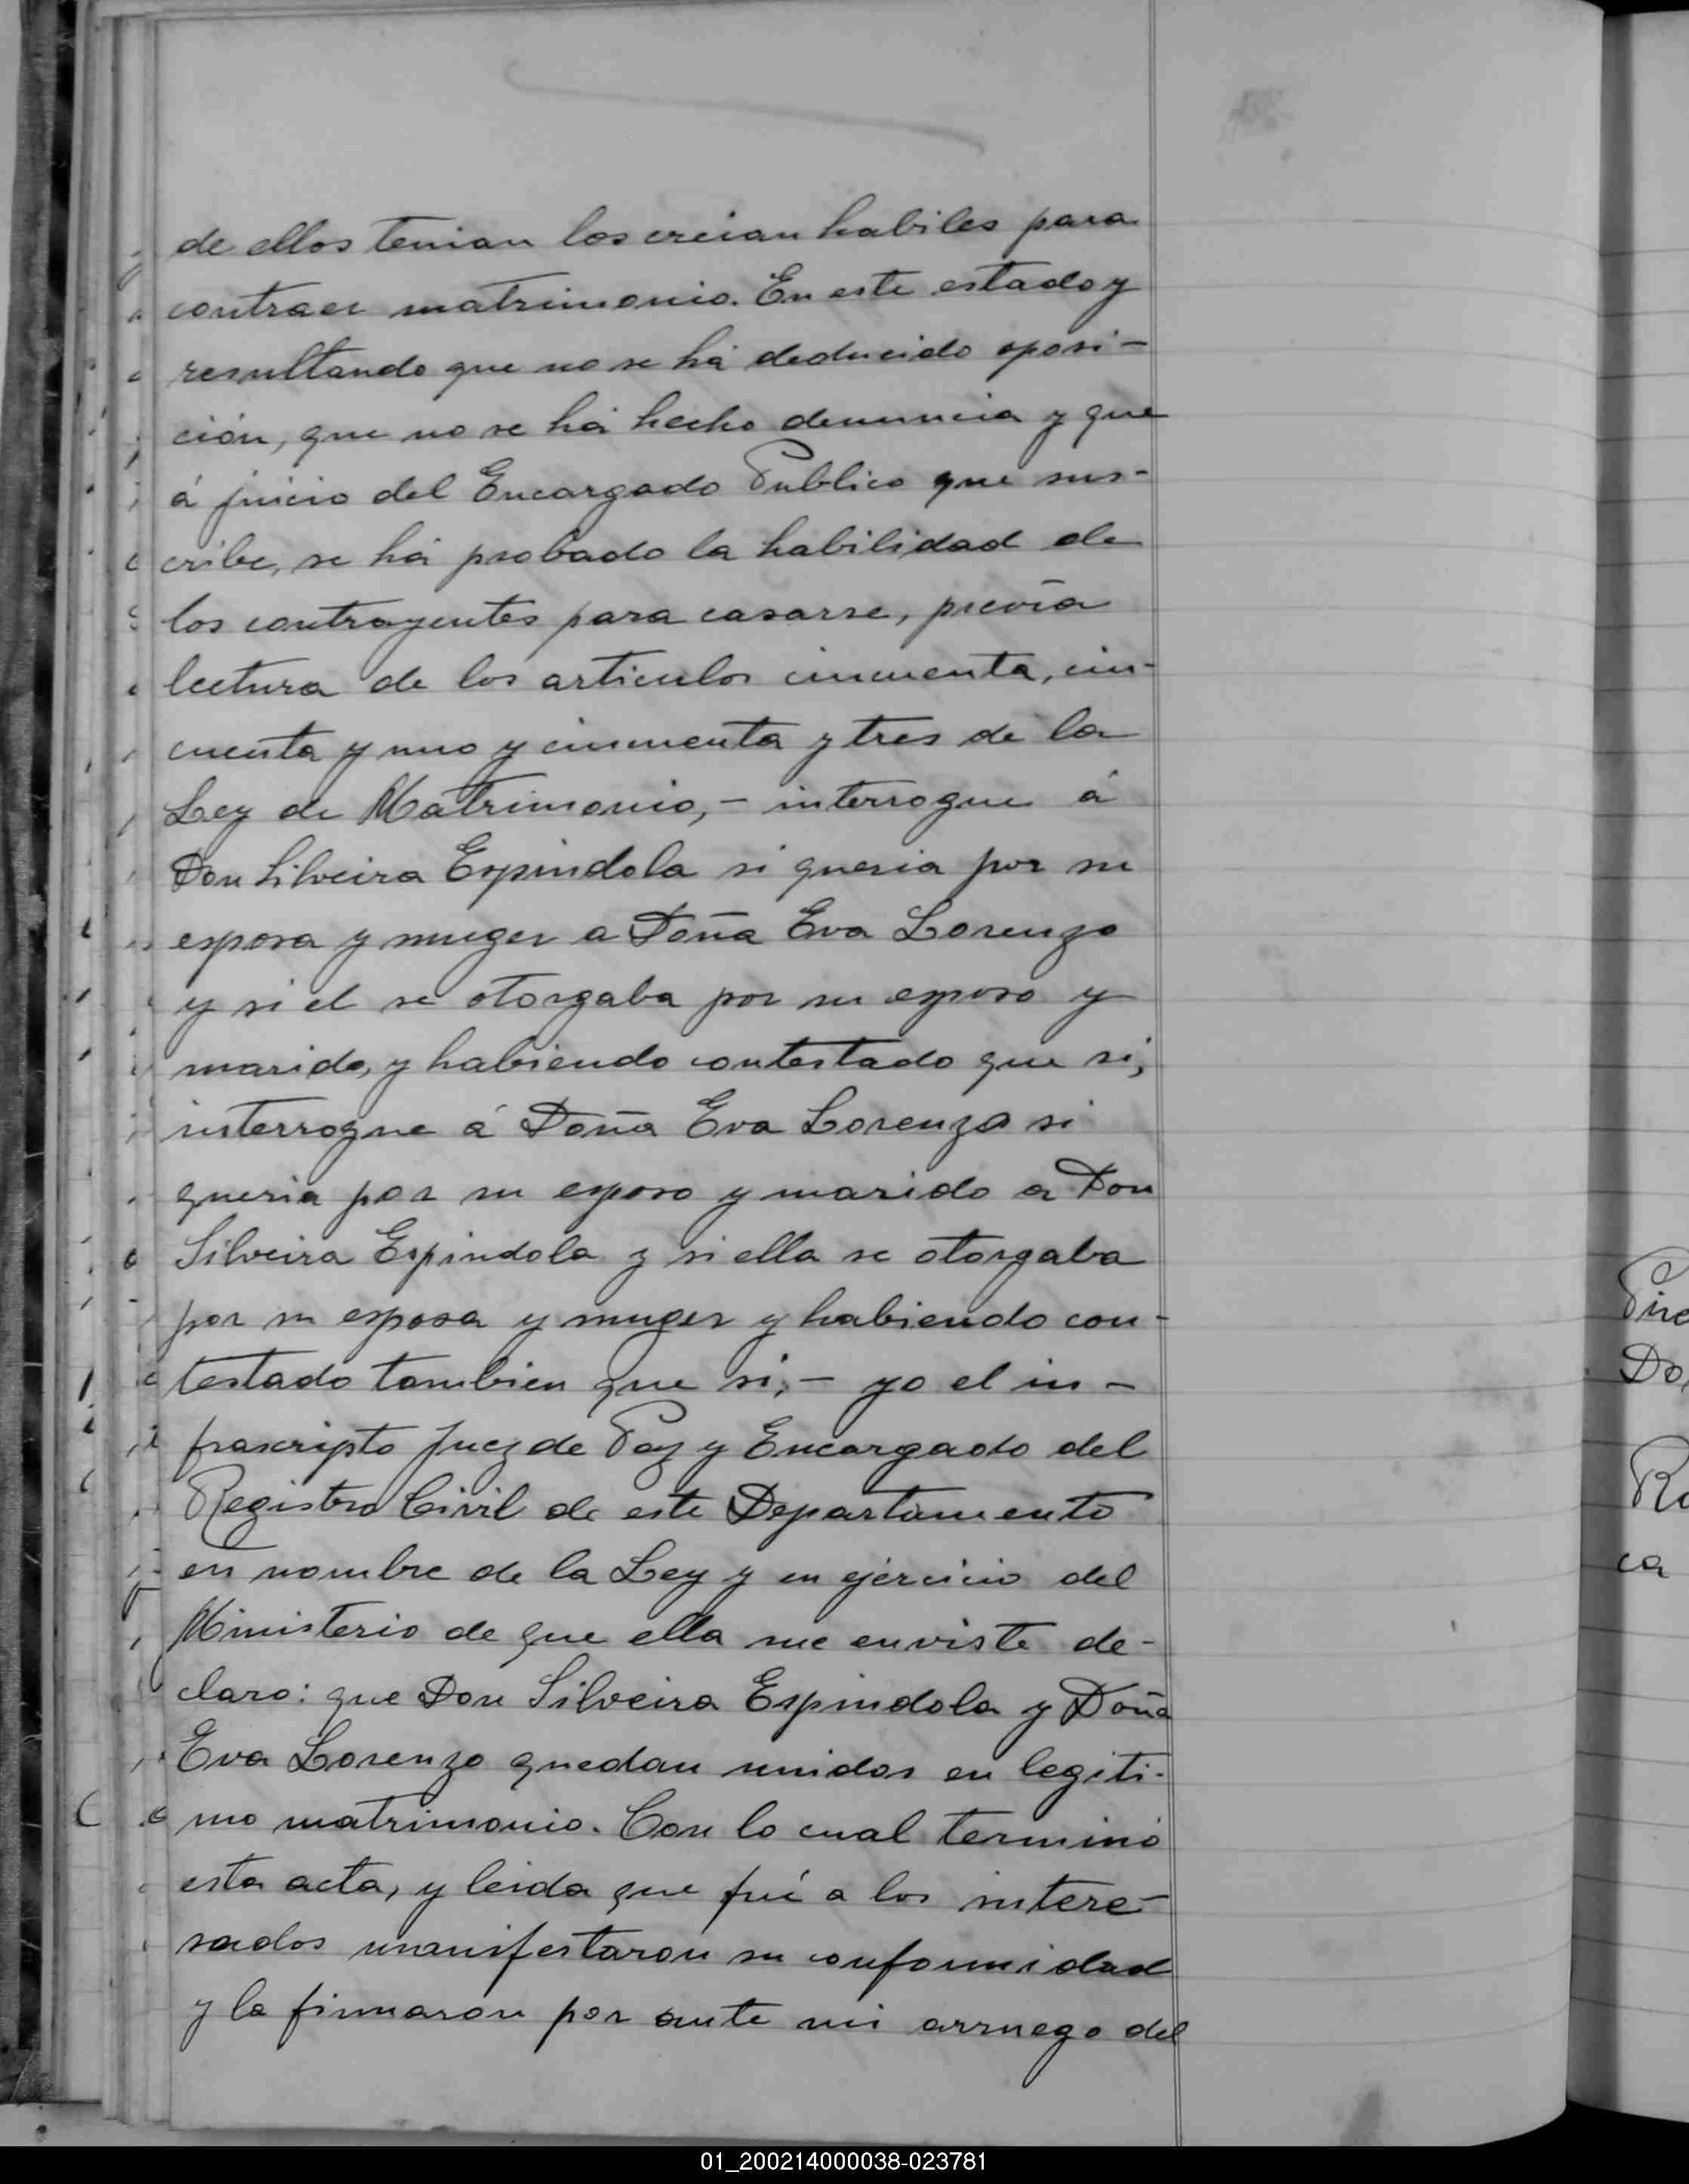 de ellos tenian los creian habiles para
contraer matrimonio. En este estado y
resultando que no se há deducido oposi-
ción, que no se há hecho denuncia y que
á juicio del Encargado Publico que sus-
cribe, se há probado la habilidad de
los contrayentes para casarse, previa
lectura de los articulos cincuenta, cin-
cuenta y uno y cincuenta y tres de la
Ley de Matrimonio,- interrogue á
Don Silveira Espindola si queria por su
esposa y muger a Doña Eva Lorenzo
y si el se otorgaba por su esposo y
marido, y habiendo contestado que si,
interrogue á Doña Eva Lorenzo si
queria por su esposo y marido a Don
Silveira Espindola y si ella se otorgaba
por su esposa y muger y habiendo con-
testado tambien que si,- yo el in-
frascripto Juez de Paz y Encargado del
Registro Civil de este Departamento
en nombre de la Ley y en ejercicio del
Ministerio de que ella me enviste de-
claro: que Don Silveira Espindola y Doña
Eva Lorenzo quedan unidos en legiti-
mo matrimonio. Con lo cual terminó
esta acta, y leida que fué a los intere-
sados manifestaron su conformidad
y la firmaron por ante mi arruego del
01_200214000038-023781